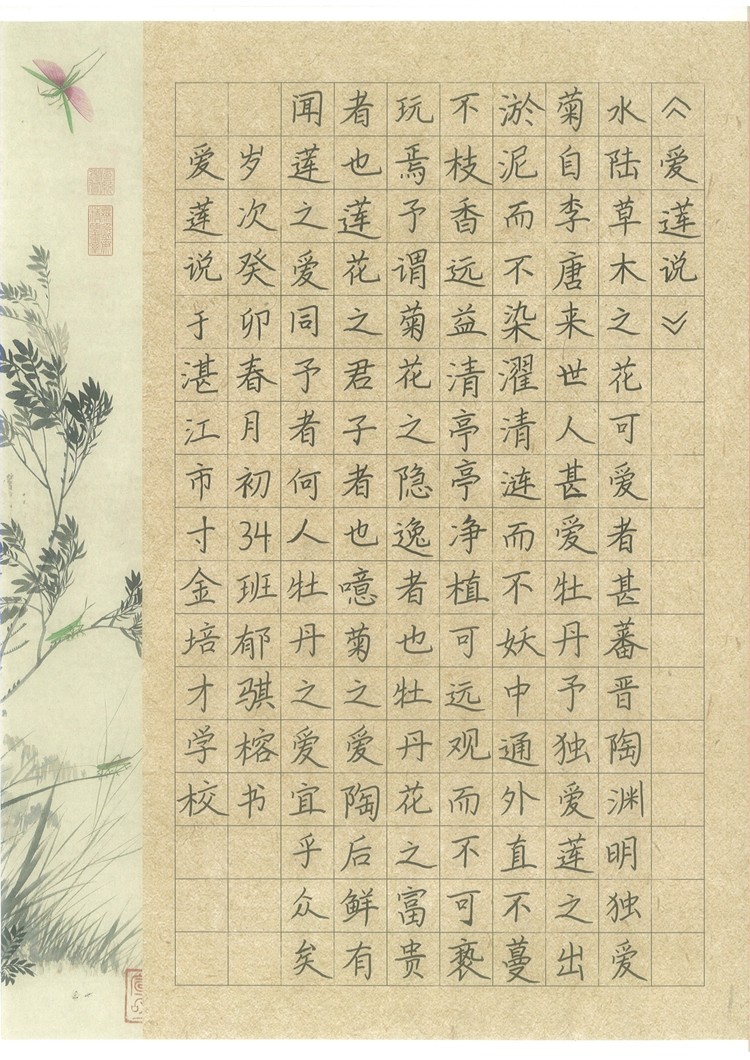 《爱莲说》
水陆草木之花可爱者甚蕃晋陶渊明独爱
菊自李唐来世人甚爱牡丹予独爱莲之出
淤泥而不染濯清涟而不妖中通外直不蔓
不枝香远益清亭亭净植可远观而不可亵
玩焉予谓菊花之隐逸者也牡丹花之富贵
者也莲花之君子者也噫菊之爱陶后鲜有
闻莲之爱同予者何人牡丹之爱宜乎众矣
岁次癸卯春月初34班郁骐榕书
爱莲说于湛江市寸金培才学校